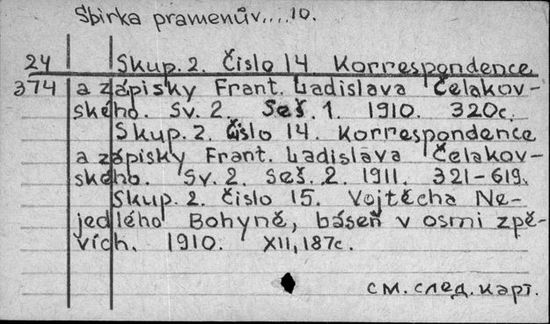 Sbirka pramenův....10.
24 Skup. 2. Čislo 14 Korrespondence
374 a zápisky Frant. Ladislava Čelakov-
ského. Sv. 2. Seš. 1. 1910. 320c.
Skup. 2. Čislo 14. Korrespondence
a zápisky Frant. Ladislava Čelakov-
ského. Sv. 2. Seš. 2. 1911. 321-619.
Skup. 2. Čislo 15. Vojtěcha Ne-
jedlého Bohyně, báseň v osmi zpě-
vích. 1910. XII, 187c.
см. след. карт.